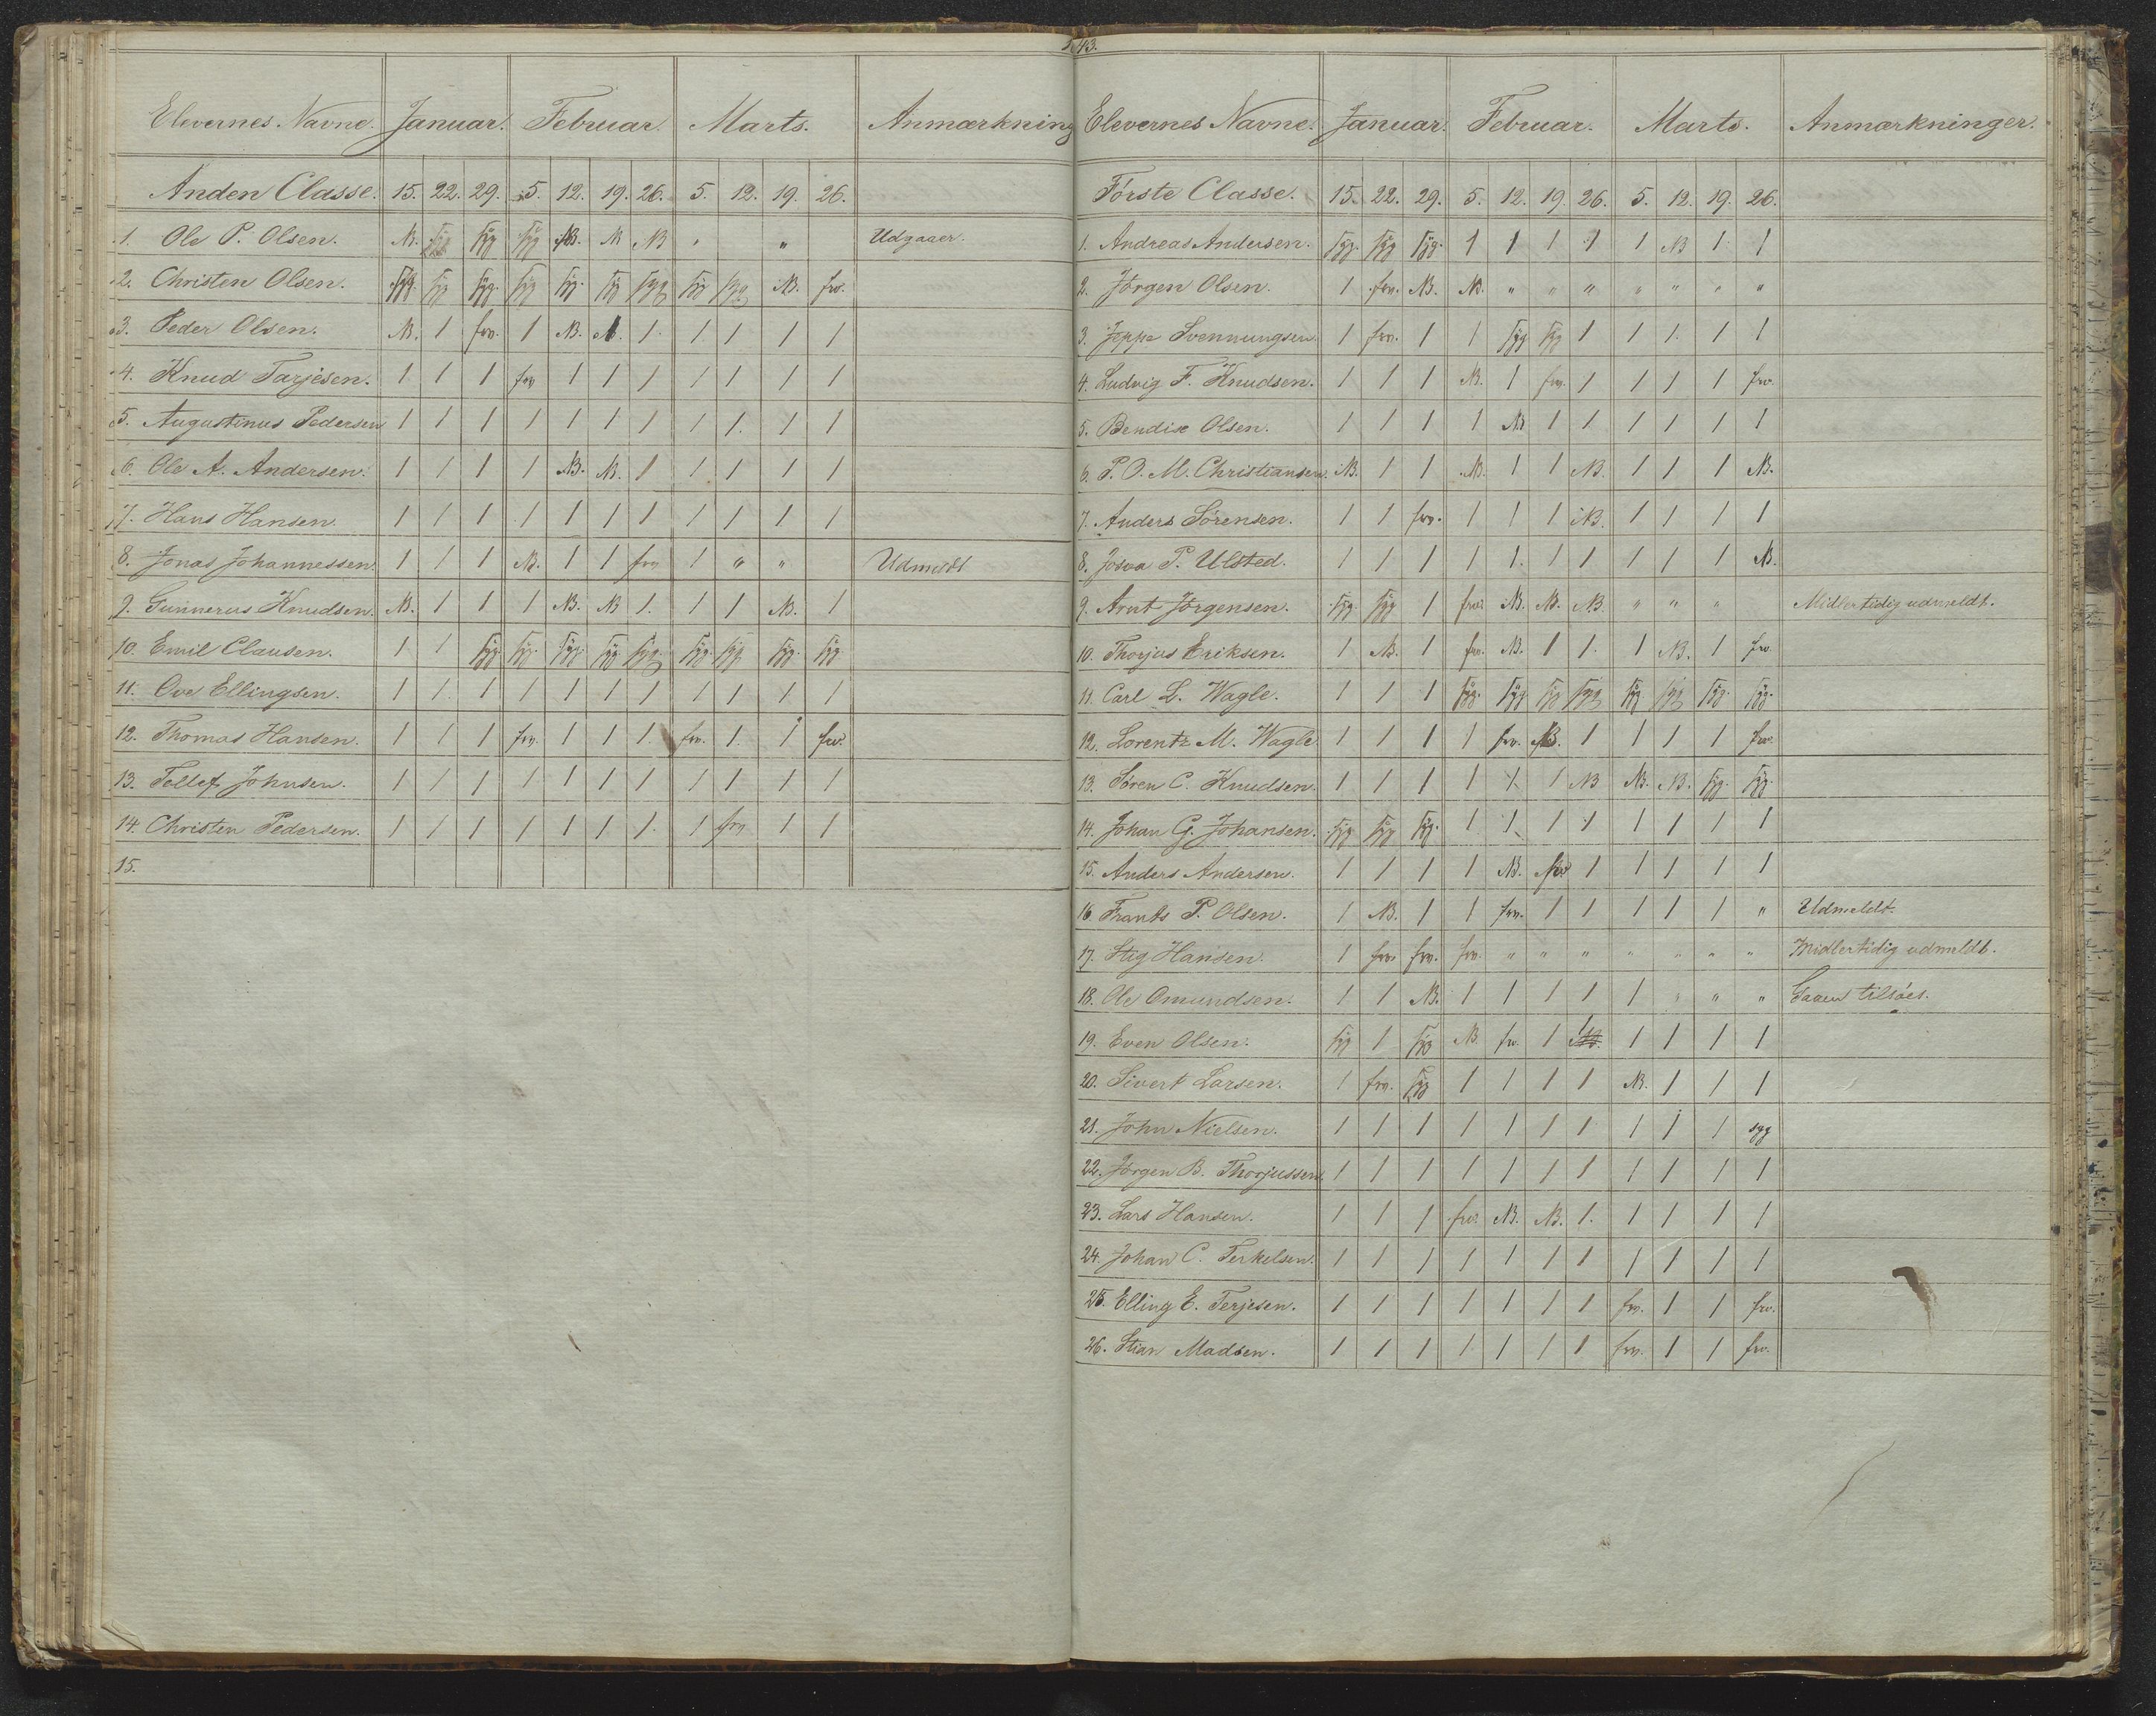 43.
Elevernes Navne. Januar. Februar. Marts. Anmærkning
Anden Classe. 15. 22. 29. 5. 12. 19. 26. 5. 12. 19. 26.
1. Ole P. Olsen. NB. syg syg syg NB. NB NB " " Udgaaer.
2. Christen Olsen. syg syg syg. syg syg. syg syg syg syg NB. frv.
3. Peder Olsen. NB. 1 frv. 1 NB. NB. 1. 1 1 1 1
4. Knud Tarjesen. 1 1 1 frv 1 1 1 1 1 1 1
5. Augustinus Pedersen 1 1 1 1 1 1 1 1 1. 1 1
6. Ole A. Andersen. 1 1 1 1 NB. NB. 1 1 1 1 1
7. Hans Hansen 1 1 1 1 1 1 1 1 1 1 1
8. Jonas Johannessen. 1 1 1 NB. 1 1 frv 1 " " Udmeldt
9. Gunnerus Knudsen. NB. 1 1 1 NB. NB 1. 1 1 NB. 1
10. Emil Clausen. 1 1 syg. syg. syg. syg syg. syg. syg. syg. syg.
11. Ove Ellingsen. 1 1. 1 1 1 1 1 1 1 1 1
12. Thomas Hansen. 1 1 1 frv. 1 1 1. frv. 1. 1 frv.
13. Tellef Johnsen. 1 1 1 1 1 1 1 1 1 1 1
14. Christen Pedersen. 1 1 1 1 1 1 1. 1 frv 1 1
15.
Elevernes Navne. Januar. Februar. Marts. Anmærkninger.
Förste Classe. 15. 22. 29. 5. 12. 19. 26. 5. 12. 19. 26.
1. Andreas Andersen. syg. syg syg. 1 1 1 1 1 NB 1 1
2. Jörgen Olsen. 1 frv. NB. NB. " " " " " " "
3. Jeppe Svennungsen 1 frv. 1 1 syg syg 1 1 1 1 1
4. Ludvig F. Knudsen. 1 1 1 NB. 1 frv. 1 1 1 1 frv.
5. Bendix Olsen. 1 1 1 1 NB 1 1 1 1 1 1
6. P. O. M. Christiansen. NB. 1 1 NB. 1 1 NB. 1 1 1 NB.
7. Anders Sörensen. 1 1 frv. 1 1 1 NB. 1 1 1 1
8. Josva P. Ulsted. 1 1 1 1 1. 1 1 1 1 1 NB.
9. Arnt Jörgensen. syg. syg 1 frv. NB. NB. NB. " " " Midlertidig udmeldt.
10. Thorjus Eriksen. 1 NB. 1 frv. NB. 1 1. 1 NB. 1 frv.
11. Carl L. Wagle. 1 1 1 syg. syg. syg syg syg syg syg. syg.
12. Lorentz M. Wagle 1 1 1 1 frv. NB. 1 1 1 1 frv.
13. Sören C. Knudsen. 1 1 1 1 1. 1 NB NB. NB. syg. syg.
14. Johan G. Johansen. syg syg syg. 1 1 1 1 1 1 1 1
15. Anders Andersen. 1 1 1 1 NB. 1 1 1 1 1
16. Frants P. Olsen. 1 NB. 1 1 frv. 1 1 1 1 1 " Udmeldt.
17. Stig Hansen. 1 frv. frv. frv. " " " " " " " Midlertidig udmeldt.
18. Ole Omundsen. 1 1 NB. 1 1 1 1 1 " " " Gaaen tilsöes.
19. Even Olsen. syg 1 syg NB. frv. 1 1 1 1 1 1
20. Sivert Larsen. 1 frv. syg 1 1 1 1 NB. 1 1 1
21. John Nielsen. 1 1 1 1 1 1 1 1 1 1 syg
22. Jörgen B. Thorjussen. 1 1 1 1 1 1 1 1 1 1 1
23. Lars Hansen. 1 1 1 frv. NB. NB. 1. 1 1 1 1
24. Johan C. Terkelsen. 1 1 1 1 1 1 1 1 1 1 1
25. Elling E. Terjesen. 1 1 1 1 1 1 1 frv. 1 1 frv.
26. Stian Madsen. 1 1 1 1 1 1 1 frv. 1 1 frv.